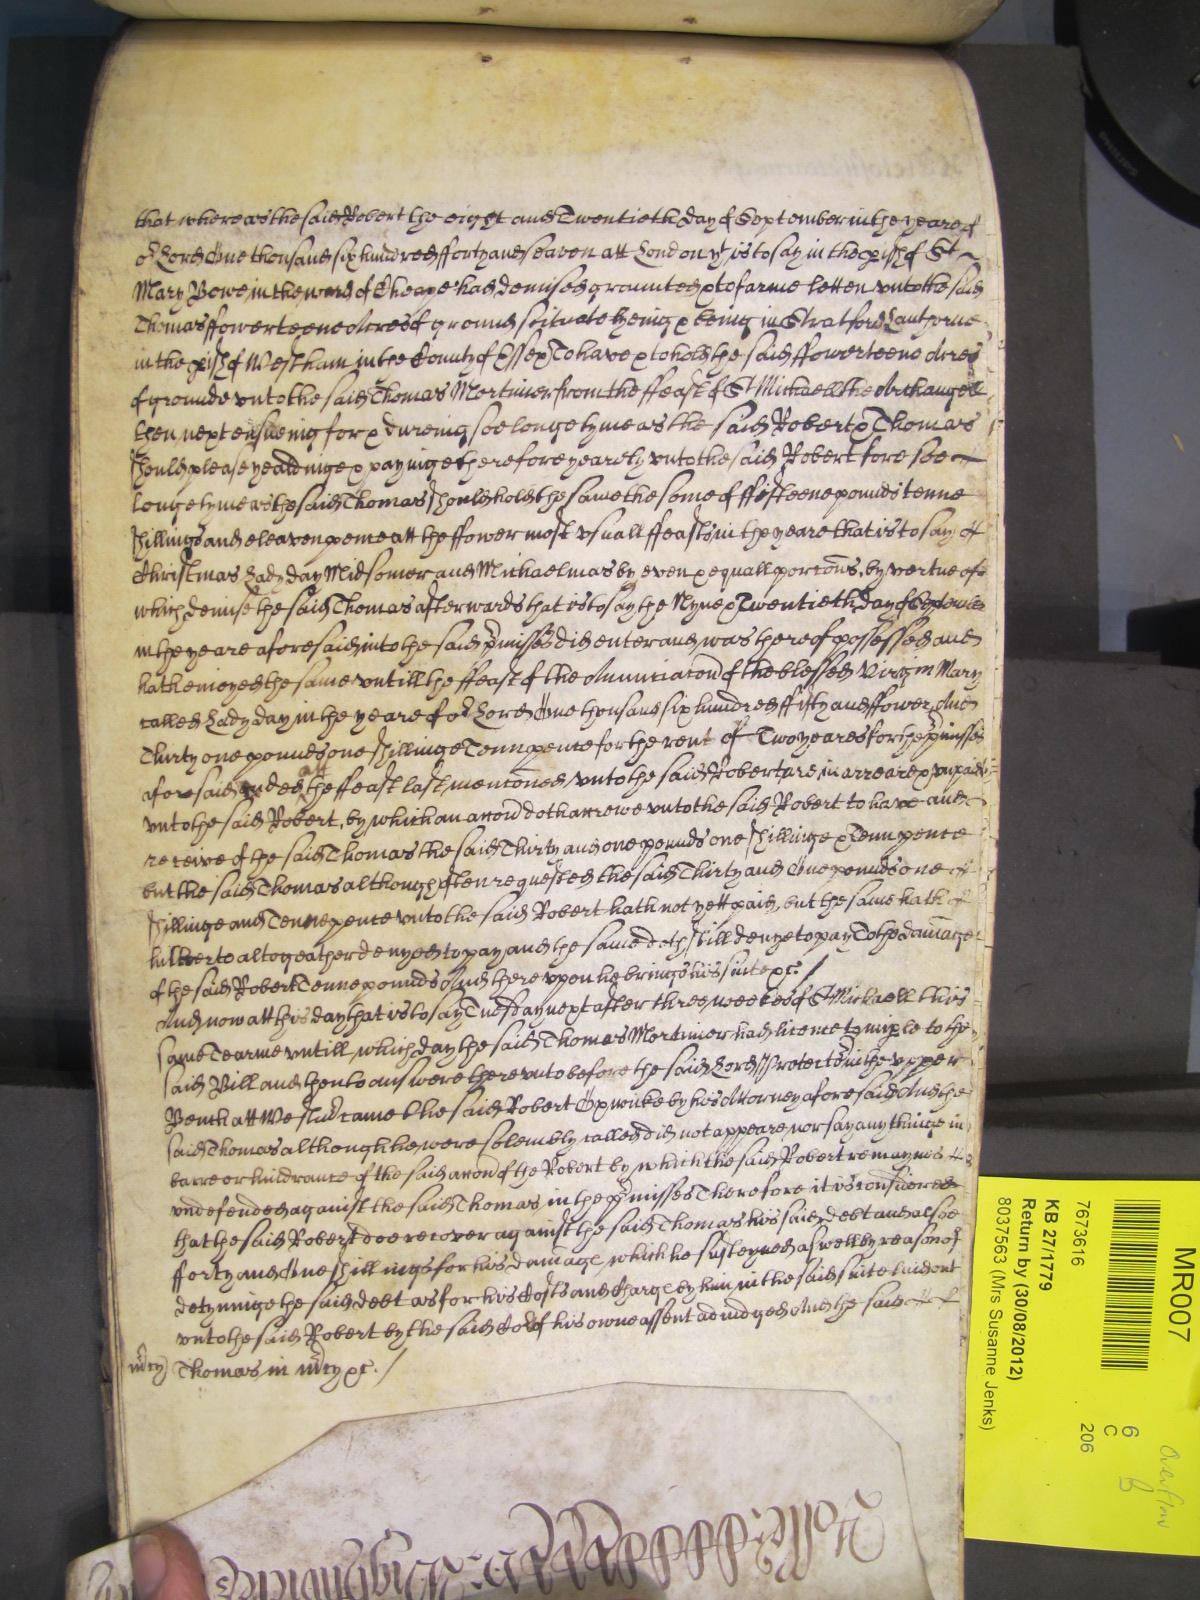 that whereas the said Robert the eight and Twentieth day of September in the yeare of
or Lord One thousand six hundred forty and seaven att London yt is to say in the pish of St
Mary Bowe in the ward of Cheape had demised graunted & to farme letten unto the said
Thomas ffowerteene Acres of ground scituate lyeing & being in Stratford Lanthorne
in the pish of Westham in the County of Essex To have & to hold the said ffowerteene Acres
of grounde unto the said Thomas Mortimer from the ffeast of St Michaell the Archangell
then next ensueing for & dureing soe longe tyme as the said Robert & Thomas
should please yealdinge & payinge therefore yearely unto the said Robert for soe
longe tyme as the said Thomas should hold the same the some of ffifteene pounds tenne
shillings and eleaven pence att the ffower most usuall ffeasts in the yeare that is to say att
Christmas Lady day Midsomer and Michaelmas by even & equall porcons, by vertue of
which demise the said Thomas afterwards that is to say the Nyne & Twentieth day of September
in the yeare aforesaid into the said pmisses did enter and was thereof possessed and
hath enioyed the same untill the ffeast of the Anunciacon of the blessed Virgin Mary
called Lady day in the yeare of or Lord One thousand six hundred ffifty and ffower, And
Thirty one pounds one shillinge Tenn pence for the rent of Two yeares for the pmisses
aforesaid ended att the ffeast last menconed unto the said Robert are in arreare & unpaid
unto the said Robert, by which an accon doth accrewe unto the said Robert to have and
receive of the said Thomas the said Thirty and one pounds one shillinge & Tenn pence
but the said Thomas although often requested the said Thirty and One pounds one
shillinge and Tenne pence unto the said Robert hath not yett paid, but the same hath
hitherto altogeather denyed to pay and the same doth still denye to pay To the damage
of the said Robert Tenne pounds And thereupon he brings his suite &c. /
And now att this day that is to say Tuesday next after three weekes of St Michaell this
same Tearme untill which day the said Thomas Mortimer had licence to imple to the
said Bill and then to answere thereunto before the said Lord Protector in the upper
Bench att Westmr came the said Robert Oxwicke by his Attorney aforesaid And the
said Thomas although he were solemly called did not appeare nor say any thinge in
barre or hindrance of the said accon of the Robert by which the said Robert remaynes
undefended against the said Thomas in the pmisses Therefore it is considered
that the said Robert doe recover against the said Thomas his said debt and alsoe
fforty and One shillings for his damage which he susteyned aswell by reason of
detyninge the said debt as for his Costs and Charge by him in the said suite laid out
unto the said Robert by the said Cort of his owne assent adiudged And the said
mcy Thomas in mcy &c. /
MR007
7673616
KB 27/1779
Return by (30/08/2012)
8037563 (Mrs Susanne Jenks)
6
C
206
Overflow
B